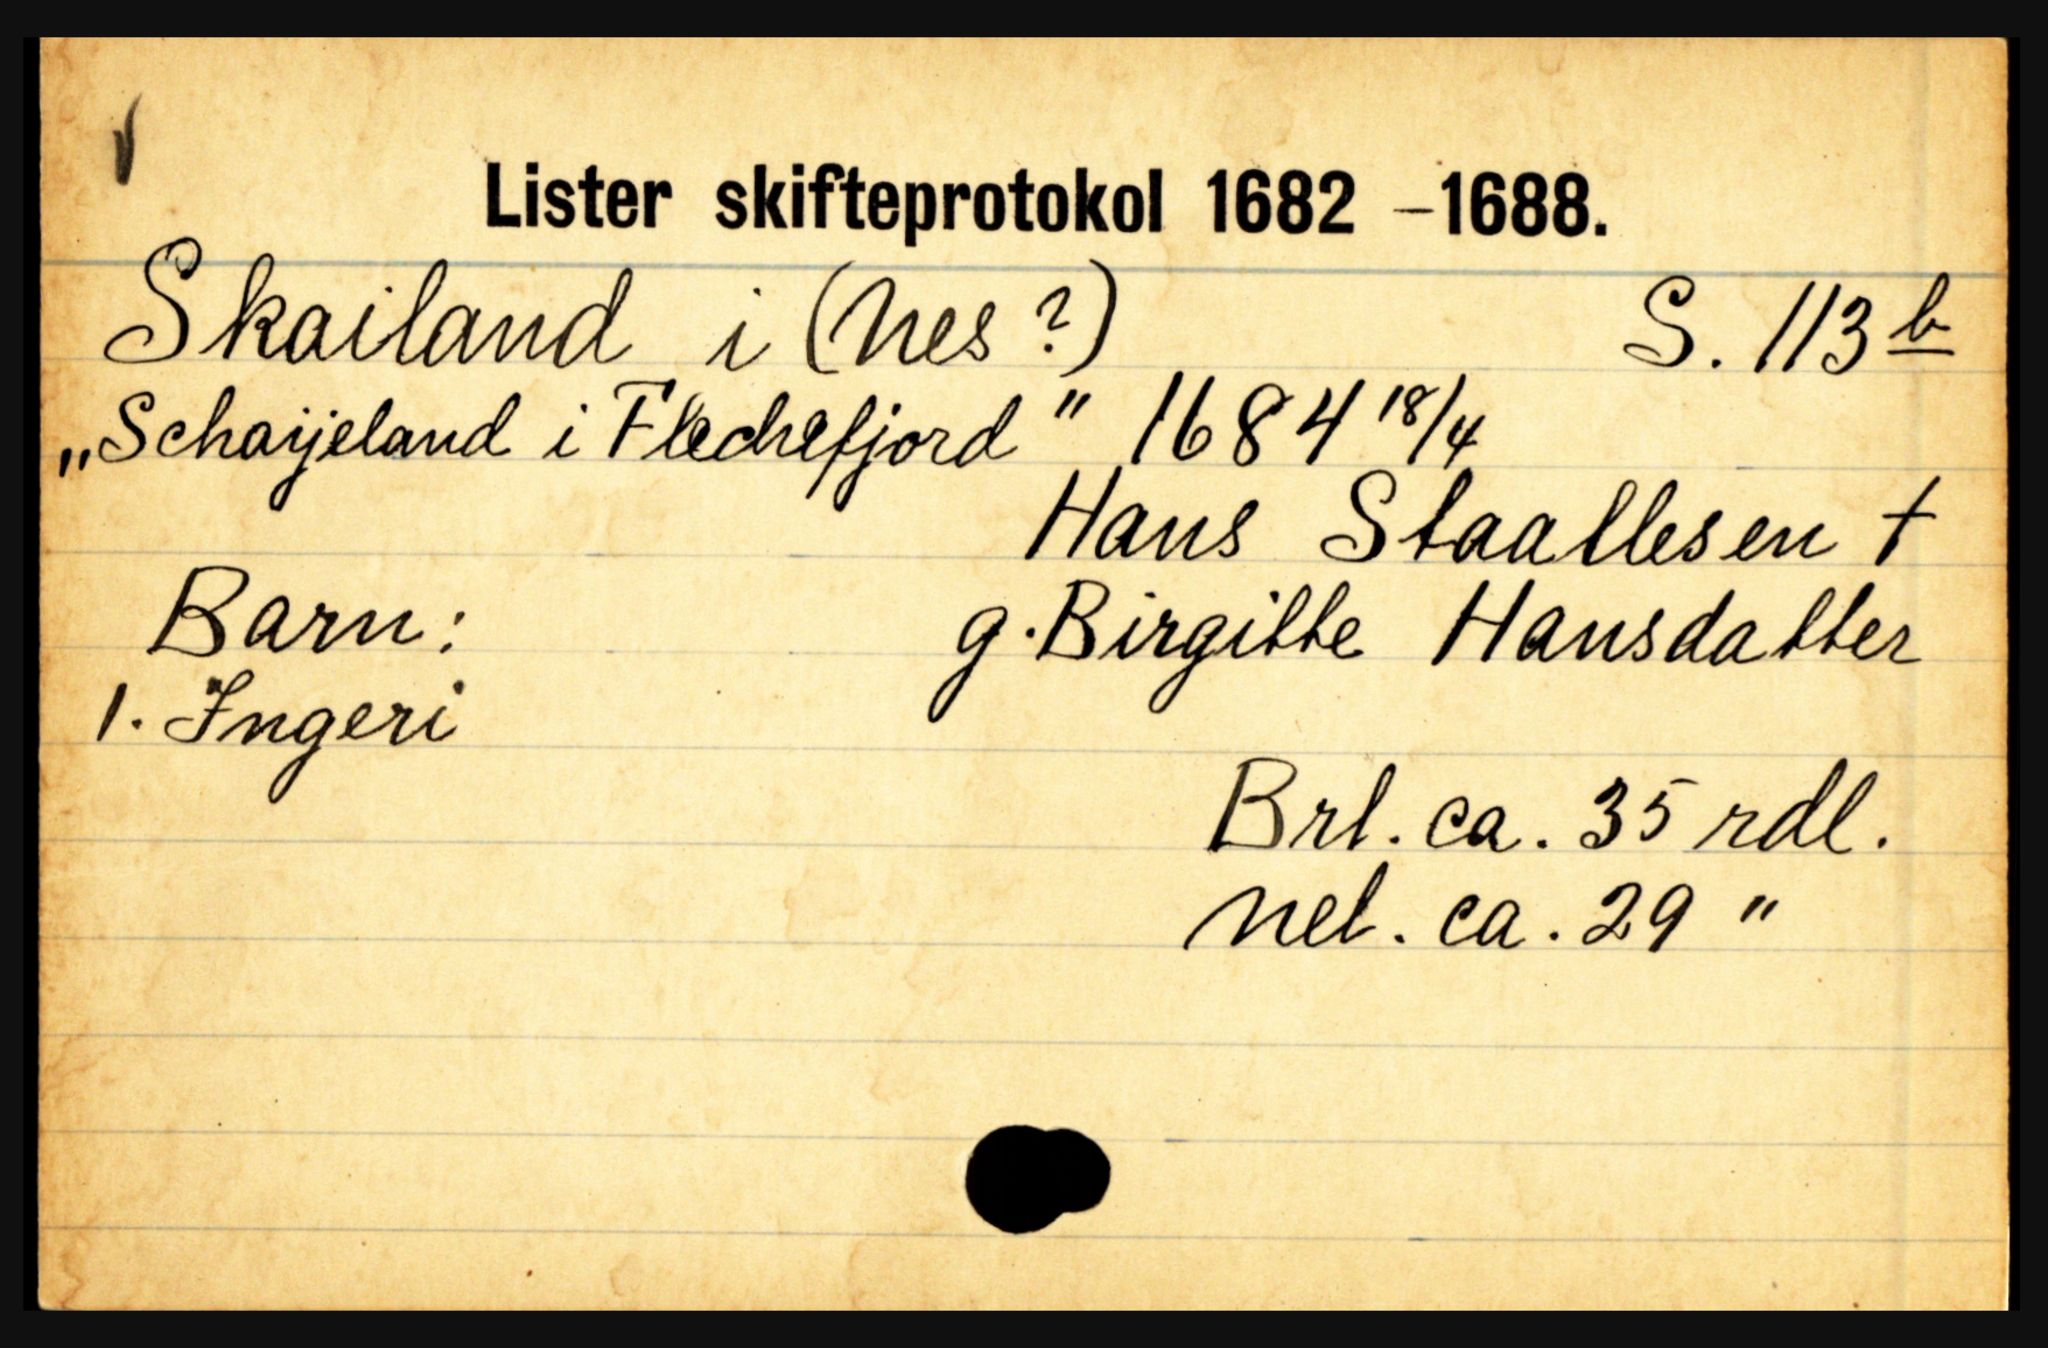 Lister skifteprotokol 1682 – 1688.
Skailand i (Nes?) S. 113 b
„Schaijeland i Flechefjord" 1684 18/4
Hans Staallesen †
Barn: g. Birgitte Hansdatter
1. Ingeri
Brt. ca. 35 rdl.
Net. ca. 29 "